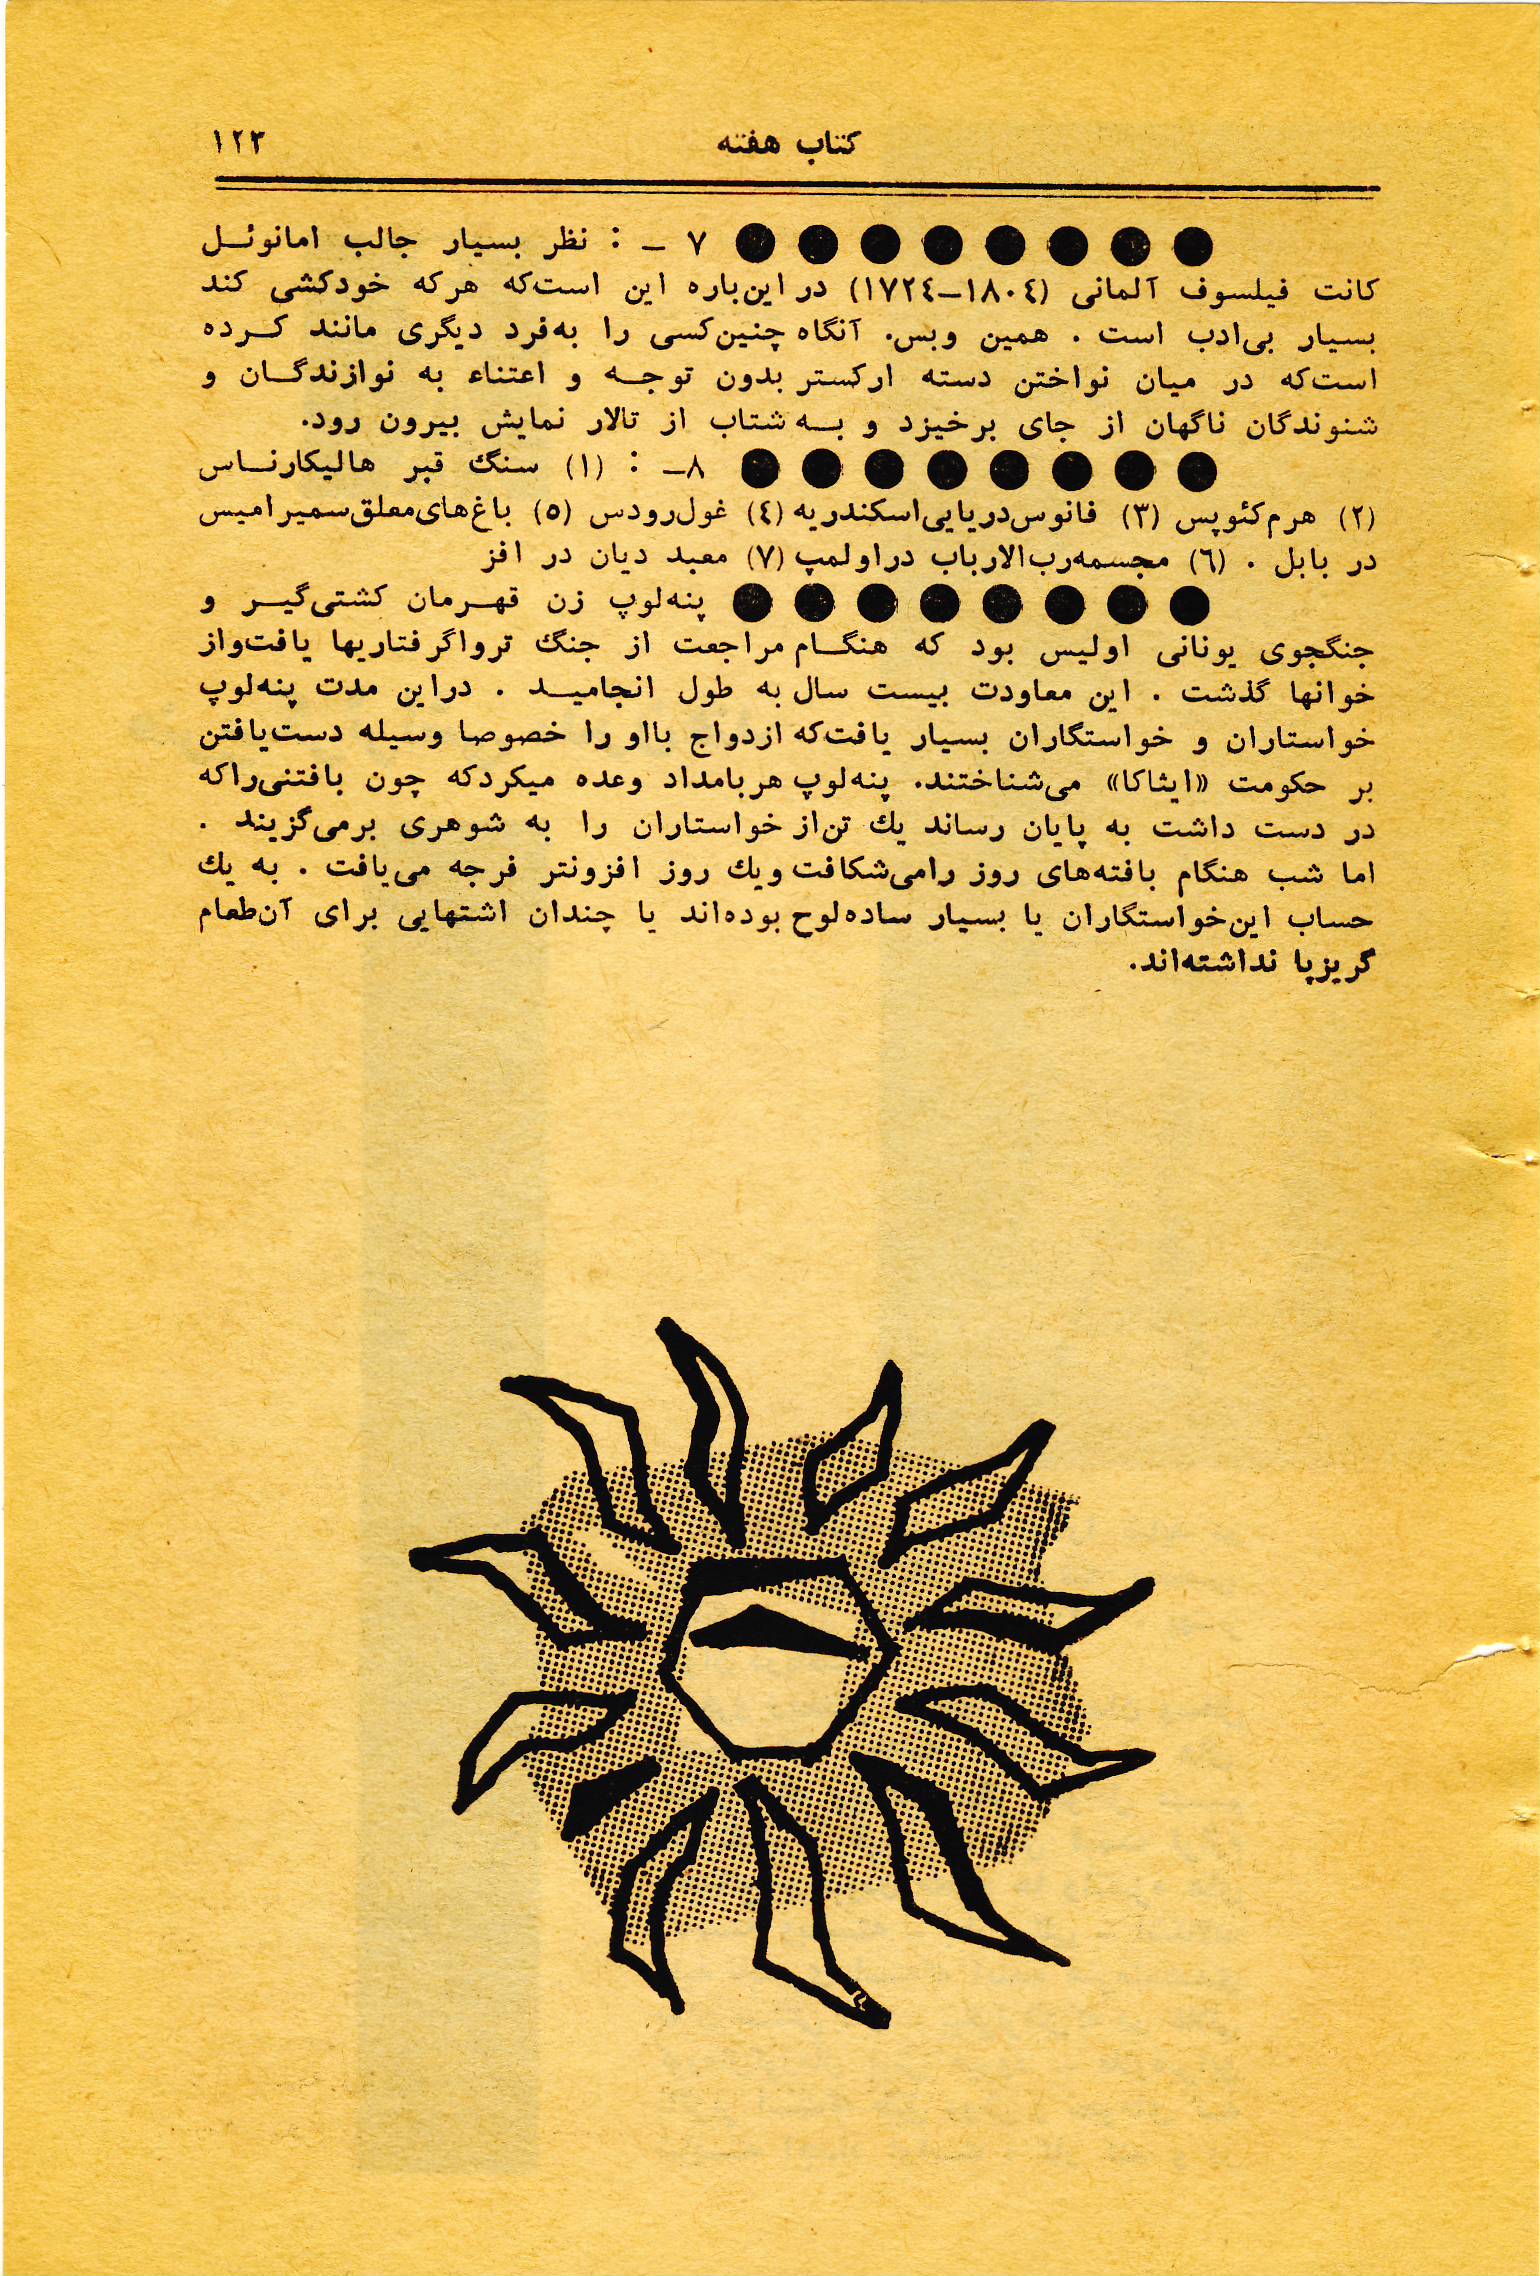 کتاب هفته ۱۲۳
●●●●●●●● ۷ ـ : نظر بسیار جالب امانوئـل
کانت فیلسوف آلمانی (۱۸۰٤–۱۷۲٤) در این‌باره این است‌که هرکه خودکشی کند
بسیار بی‌ادب است . همین وبس. آنگاه چنین‌کسی را به‌فرد دیگری مانند کـرده
است‌که در میان نواختن دسته ارکستر بدون توجـه و اعتناء به نوازندگـان و
شنوندگان ناگهان از جای برخیزد و بـه شتاب از تالار نمایش بیرون رود.
●●●●●●●● ۸ـ : (۱) سنگ قبر هالیکارنـاس
(۲) هرم‌کئوپس (۳) فانوس‌دریایی‌اسکندریه (٤) غول‌رودس (٥) باغ‌های‌معلق‌سمیرامیس
در بابل . (٦) مجسمه‌رب‌الارباب دراولمپ (۷) معبد دیان در افز
●●●●●●●● پنه‌لوپ زن قهـرمان کشتی‌گیـر و
جنگجوی یونانی اولیس بود که هنگـام مراجعت از جنگ ترواگرفتاریها یافت‌واز
خوانها گذشت . این معاودت بیست سال به طول انجامیـد . دراین مدت پنه‌لوپ
خواستاران و خواستگاران بسیار یافت‌که ازدواج بااو را خصوصا وسیله دست‌یافتن
بر حکومت «ایثاکا» می‌شناختند. پنه‌لوپ هربامداد وعده میکردکه چون بافتنی‌راکه
در دست داشت به پایان رساند یك تن‌از خواستاران را به شوهری برمی‌گزیند .
اما شب هنگام بافته‌های روز رامی‌شکافت ویك روز افزونتر فرجه می‌یافت . به یك
حساب این‌خواستگاران یا بسیار ساده‌لوح بوده‌اند یا چندان اشتهایی برای آن‌طعام
گریزپا نداشته‌اند.